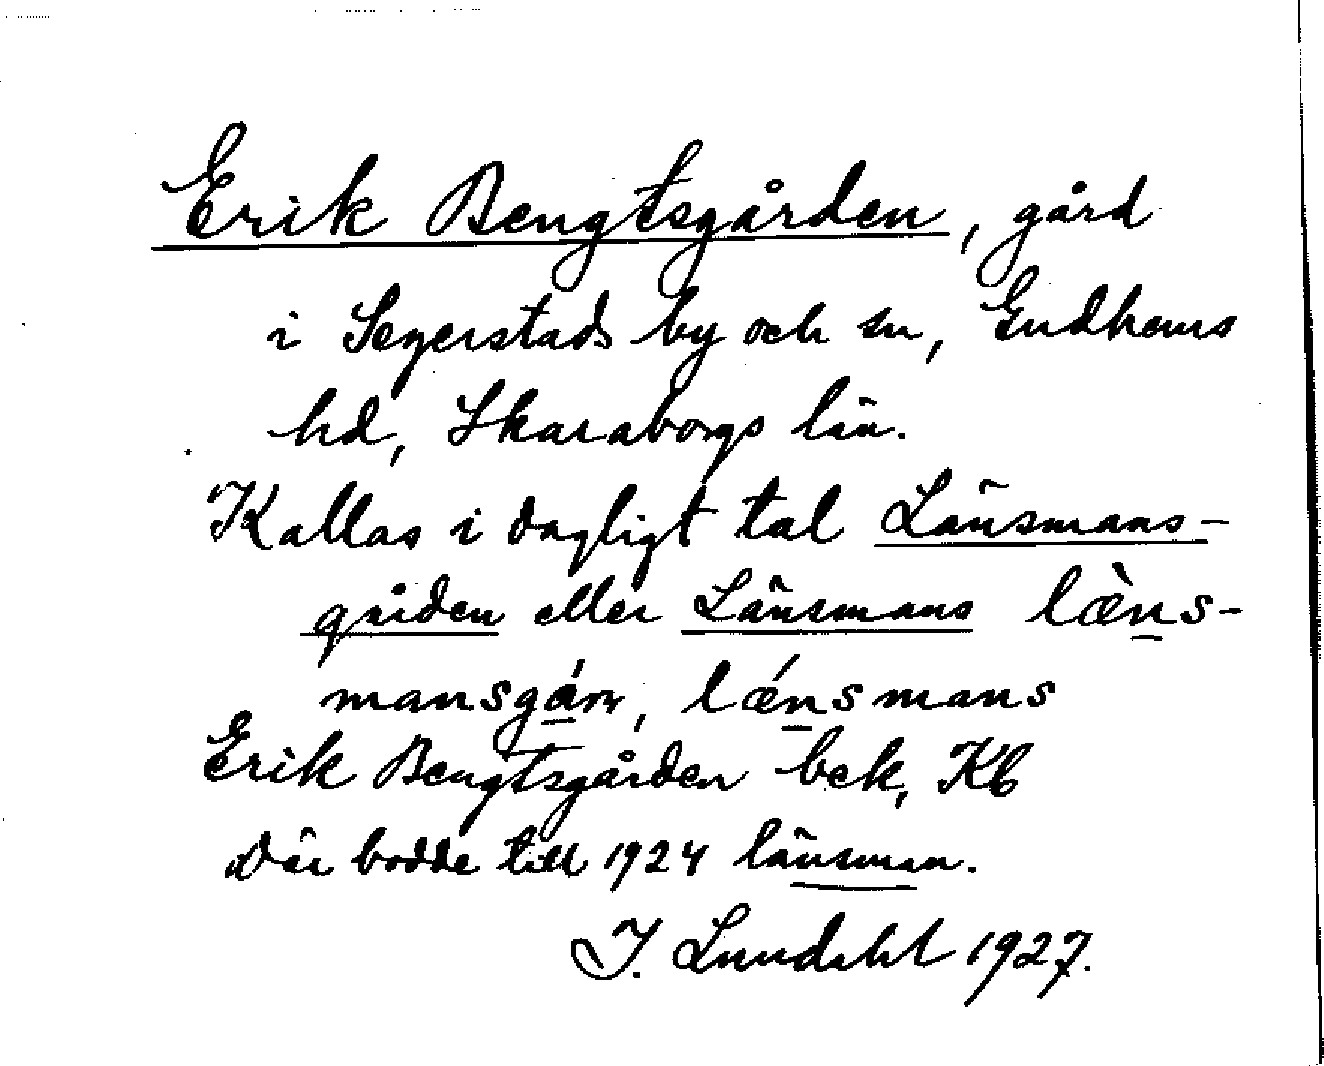 Erik Bengtsgården, gård
i Segerstads by och sn, Gudhems
hd, Skaraborgs län.
Kallas i dagligt tal Länsmans-
gården eller Länsmans læ̀ns-
mansgáṛ, lǽnsmans
Erik Bengtsgården bek, Kb
Där bodde till 1924 länsman.
I. Lundahl 1927.